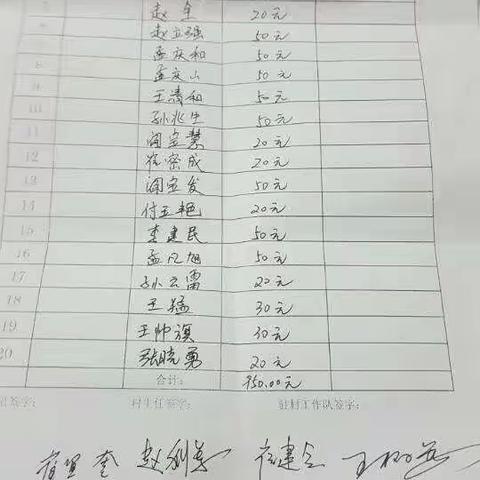 赵全 20元
赵立强 50元
孟庆和 50元
8 孟庆山 50元
王清和 50元
10 孙兆生 50元
11 阎宝慧 20元
12 崔密成 20元
13 阎宝发 50元
14 付玉艳 20元
15 李建民 50元
16 孟凡旭 50元
17 孙云雷 20元
18 王猛 30元
19 王帅旗 30元
20 张晓勇 20元
合计: 950.00元
签字: 村主任签字: 驻村工作队签字: